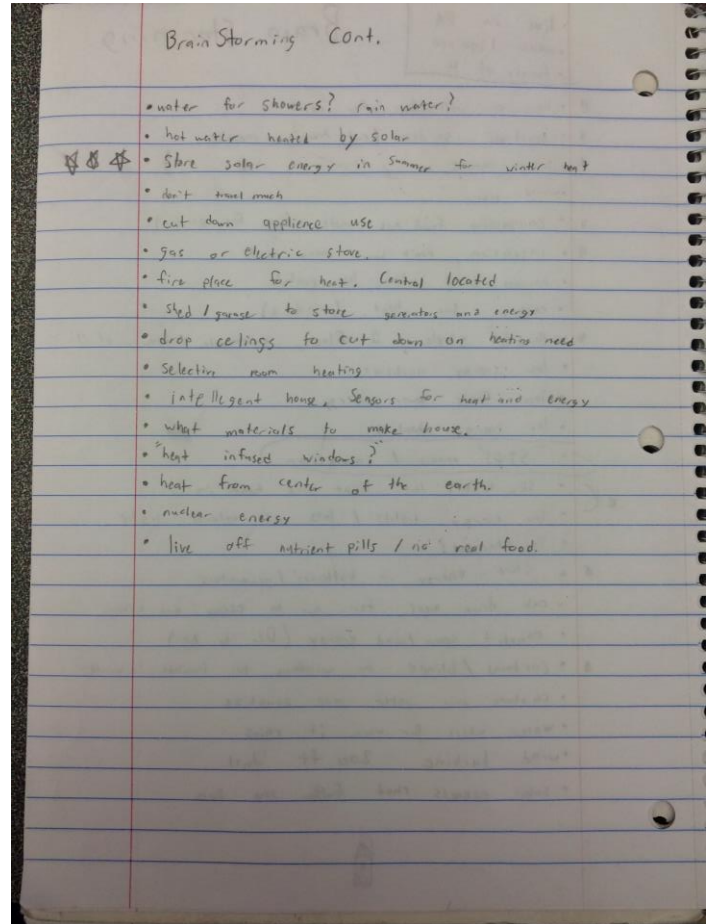 Brain Storming Cont.
• water for showers? rain water?
• hot water heated by solar
• Store solar energy in Summer for winter heat
• don't travel much
• cut down applience use
• gas or electric stove.
• fire place for heat. Central located
• shed / garage to store generators and energy
• drop celings to cut down on heating need
• Selectiv room heating
• intellegent house, Sensors for heat and energy
• what materials to make house.
• "heat infused windows?"
• heat from center of the earth.
• nuclear energy
• live off nutrient pills / no real food.